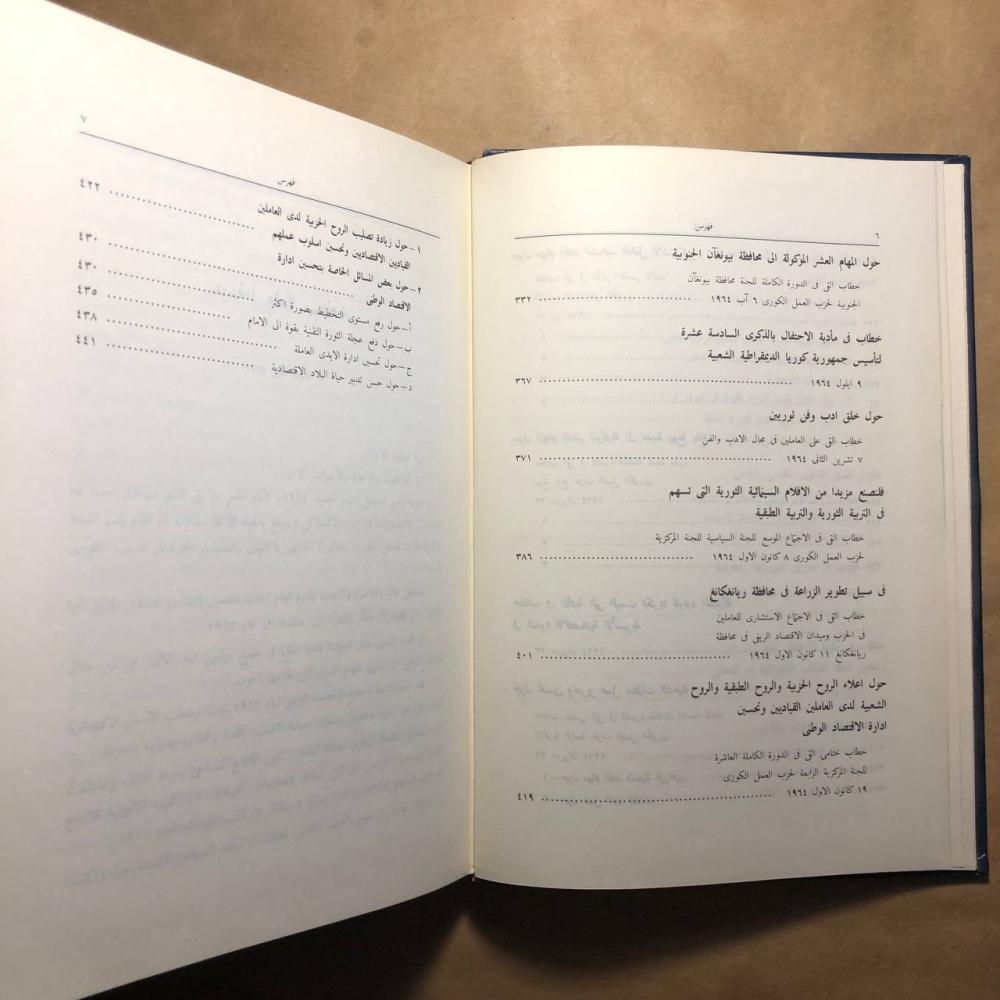 ٦
فهرس
حول المهام العشر الموكولة الى محافظة بيونغآن الجنوبية
خطاب القى فى الدورة الكاملة للجنة محافظة بيونغآن
الجنوبية لحزب العمل الكورى ٦ آب ١٩٦٤ ٣٣٢
خطاب فى مأدبة الاحتفال بالذكرى السادسة عشرة
لتأسيس جمهورية كوريا الديمقراطية الشعبية
٩ ايلول ١٩٦٤ ٣٦٧
حول خلق ادب وفن ثوريين
خطاب القى على العاملين فى مجال الادب والفن
٧ تشرين الثانى ١٩٦٤ ٣٧١
فلنصنع مزيدا من الافلام السينمائية الثورية التى تسهم
فى التربية الثورية والتربية الطبقية
خطاب القى فى الاجتماع الموسع للجنة السياسية للجنة المركزية
لحزب العمل الكورى ٨ كانون الاول ١٩٦٤ ٣٨٦
فى سبيل تطوير الزراعة فى محافظة ريانغكانغ
خطاب القى فى الاجتماع الاستشارى للعاملين
فى الحزب وميدان الاقتصاد الريفى فى محافظة
ريانغكانغ ١١ كانون الاول ١٩٦٤ ٤٠١
حول اعلاء الروح الحزبية والروح الطبقية والروح
الشعبية لدى العاملين القياديين وتحسين
ادارة الاقتصاد الوطنى
خطاب ختامى القى فى الدورة الكاملة العاشرة
للجنة المركزية الرابعة لحزب العمل الكورى
١٩ كانون الاول ١٩٦٤ ٤١٩
٧
فهرس
١ – حول زيادة تصليب الروح الحزبية لدى العاملين
القياديين الاقتصاديين وتحسين اسلوب عملهم ٤٢٢
٢ – حول بعض المسائل الخاصة بتحسين ادارة
الاقتصاد الوطنى ٤٣٠
أ – حول رفع مستوى التخطيط بصورة اكثر ٤٣٠
ب – حول دفع عجلة الثورة التقنية بقوة الى الامام ٤٣٥
ج – حول تحسين ادارة الايدى العاملة ٤٣٨
د – حول حسن تدبير حياة البلاد الاقتصادية ٤٤١